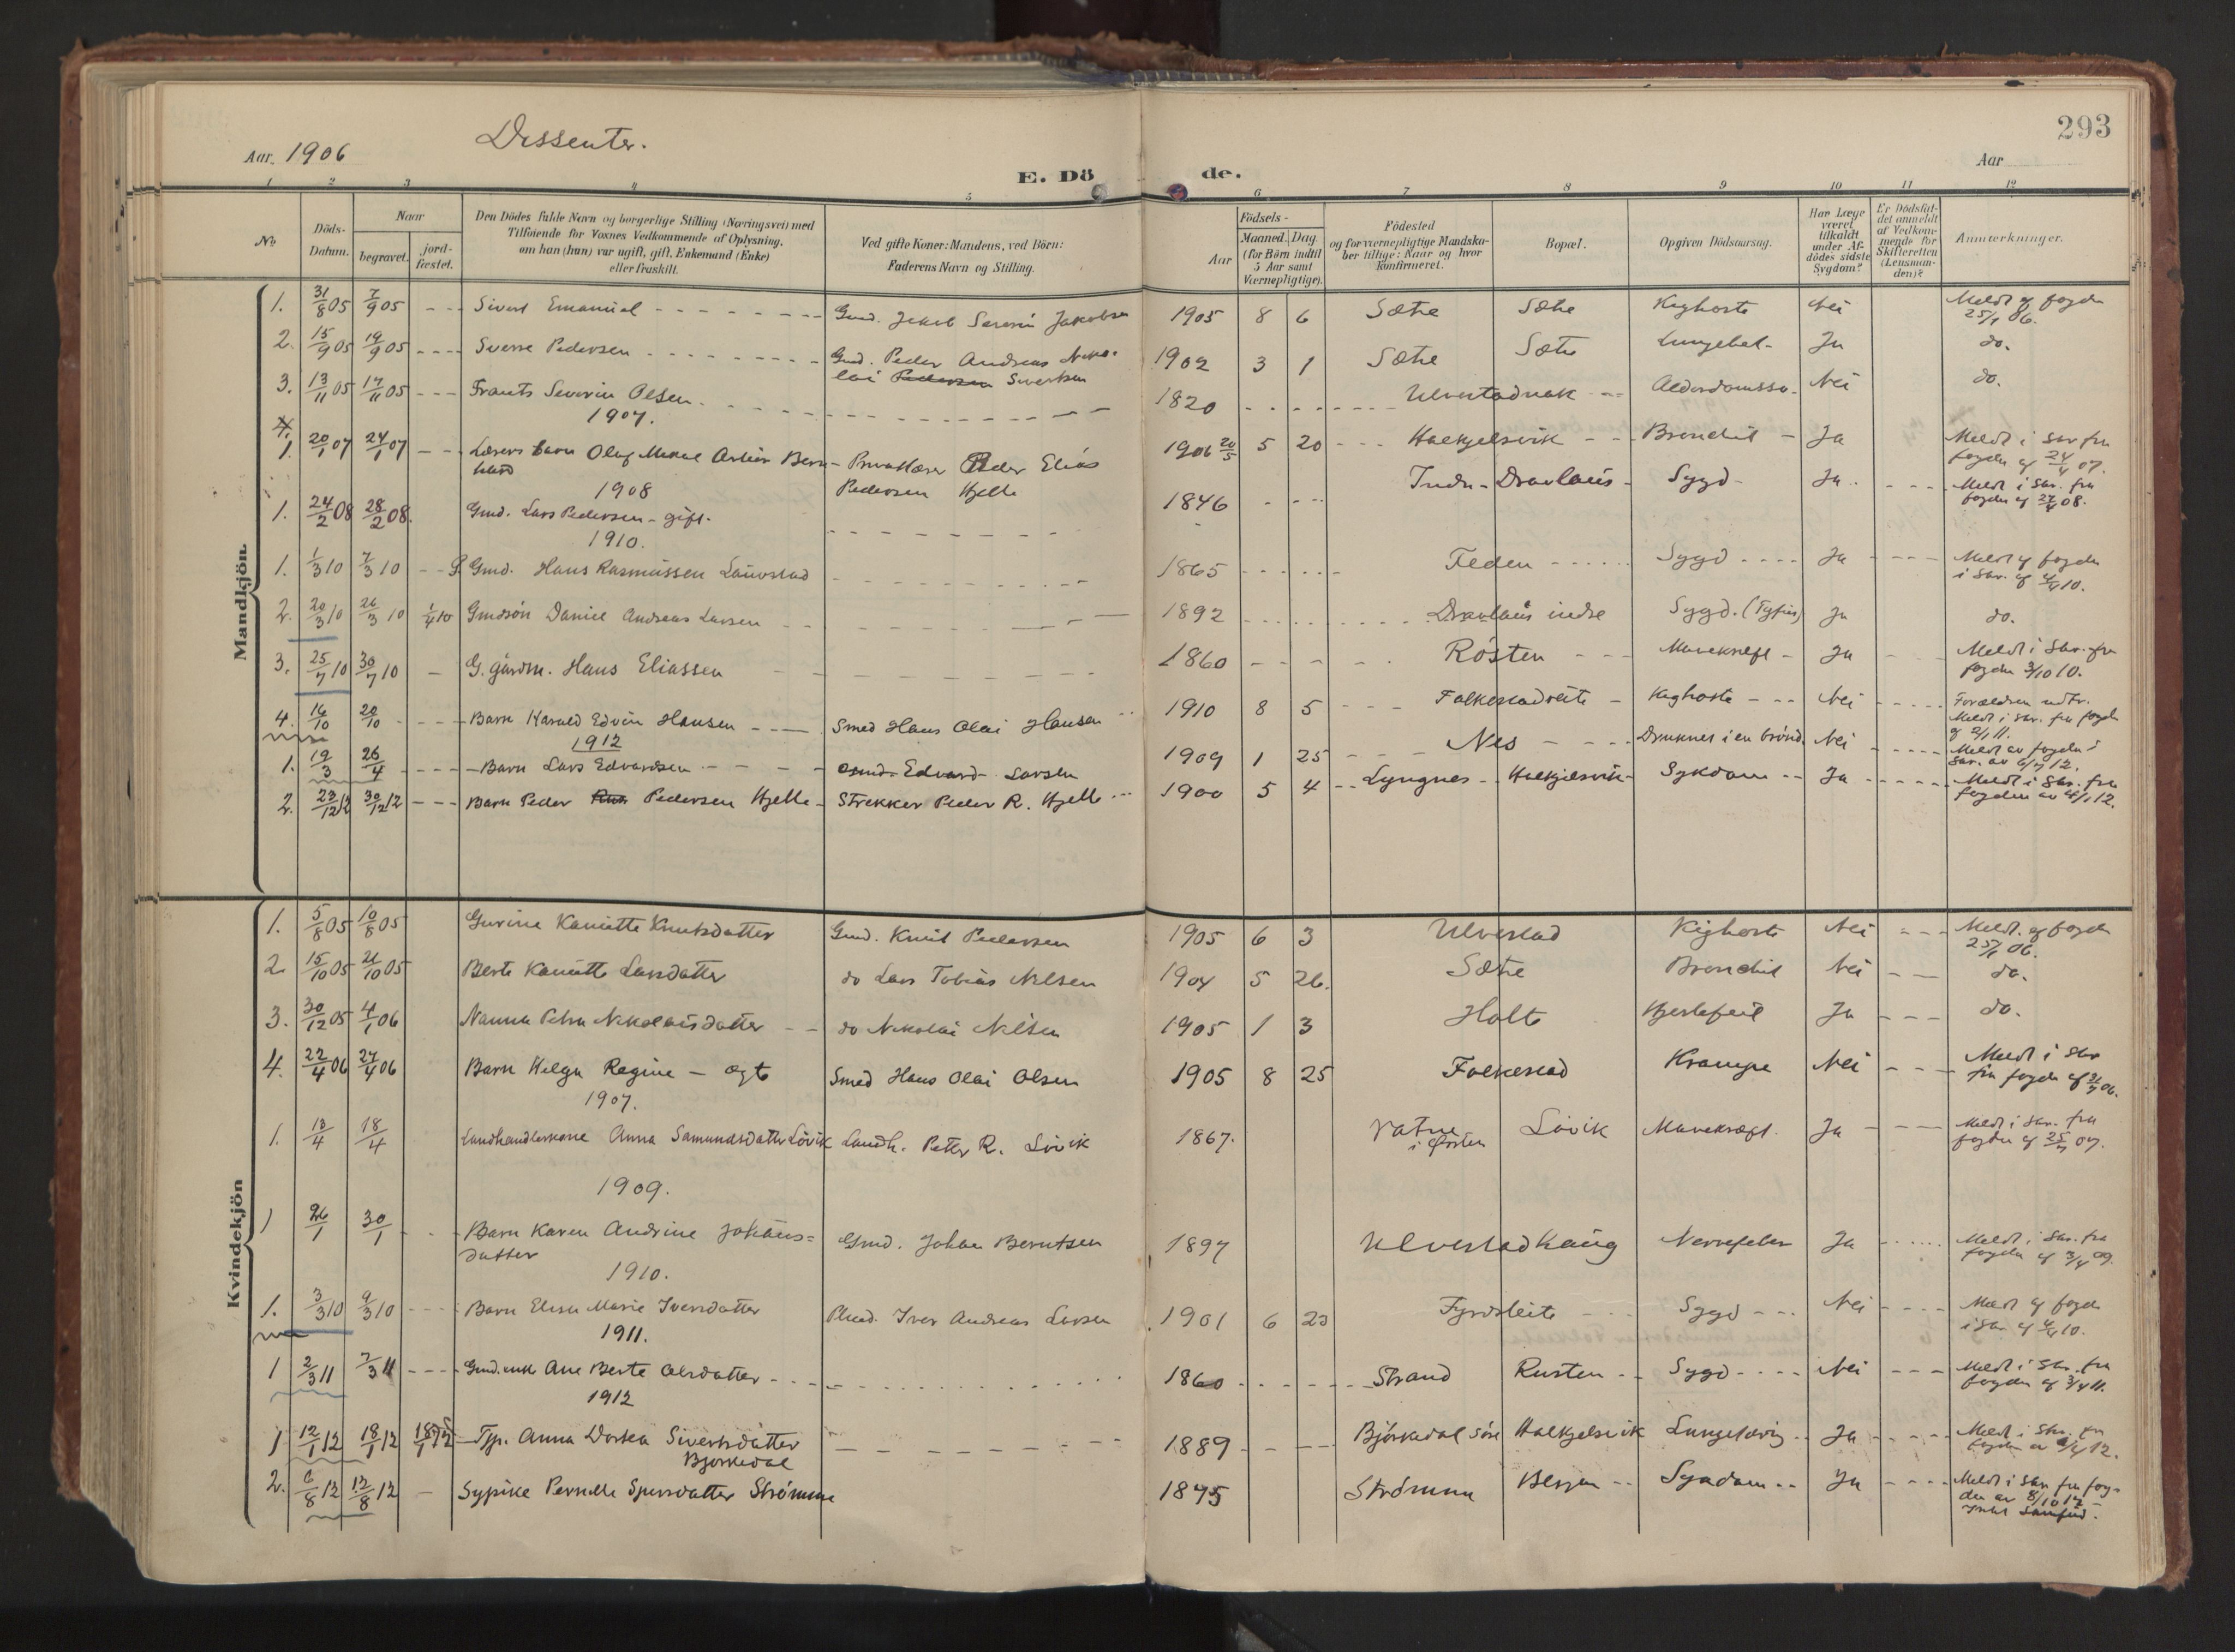 293
Aar 1906
Dissenter.
Aar
E. Dö de.
1 2 3 4 5 6 7 8 9 10 11 12
No
Döds-Datum.
Naar
begravet.
jord-fæstet.
Den Dödes fulde Navn og borgerlige Stilling (Næringsvei) med
Tilföiende for Voxnes Vedkommende af Oplysning,
om han (hun) var ugift, gift, Enkemand (Enke)
eller fraskilt.
Ved gifte Koner: Mandens, ved Börn:
Faderens Navn og Stilling.
Födsels-
Aar
Maaned. Dag
(for Börn indtil
5 Aar samt
Værnepligtige).
Födested
og for værnepligtige Mandska-
ber tillige: Naar og hvor
konfirmeret.
Bopæl.
Opgiven Dödsaarsag.
Har Læge
været
tilkaldt
under Af-
dödes sidste
Sygdom?
Er Dödsfal-
det anmeldt
af Vedkom-
mende for
Skifteretten
(Lensman-
den)?
Anmærkninger.
Mandkjön.
1. 31/8 05 7/9 05 Sivert Emanuel Gmd. Jakob Severin Jakobsen 1905 8 6 Sætre Sætre Kighoste Nei Meldt af fogden 25/1 06.
2. 15/9 05 19/9 05 Sverre Pedersen Gmd. Peder Andreas Niko-
lai Pedersen Sivertsen 1902 3 1 Sætre Sætre Lungebet. Ja do.
3. 13/11 05 17/11 05 Frants Severin Olsen 1820 Ulvestadvak Alderdomssv. Nei do.
1907.
1. 20/1 07 24/1 07 Lærers barn Olaf Mekal Artur Bern-
hard Privatlærer Peder Elias
Pedersen Hjelle 1906 20/5 5 20 Halkjelsvik Bronchit Ja Meldt i Skr fra
fogden af 24/4 07.
1908
1. 24/2 08 28/2 08. Gmd. Lars Pedersen - gift. 1846 Indre-Dravlaus Sygd Ja Meldt i Skr. fra
fogden af 27/4 08.
1910.
1. 1/3 10 7/3 10 Gmd. Hans Rasmussen Lauvstad 1865 Feden Sygd Ja Meldt af fogden
i Skr. af 4/4 10.
2. 20/3 10 26/3 10 1/4 10 Gmdsön Daniel Andreas Larsen 1892 Dravlaus indre Sygd. (Tyfus) Ja do.
3. 25/7 10 30/7 10 G. gårdm. Hans Eliassen 1860 Rösten Mavekræft Ja Meldt i Skr. fra
fogden 3/10 10.
4. 16/10 20/10 Barn Harald Edvin Hansen Smed Hans Olai Hansen 1910 8 5 Folkestadreite Kighoste Nei Forældren udtr.
Meldt i Skr. fra fogden
af 2/1 11.
1912
1. 19/3 26/4 Barn Lars Edvardsen Gmd. Edvard Larsen 1909 1 25 Nes Druknet i en brönd. Nei Meldt av fogden i
Skr. av 6/7 12.
2. 23/12 12 30/12 12 Barn Peder Pedersen Hjelle Strekker Peder R. Hjelle 1900 5 4 Lyngnes Halkjelsvik Sykdom Ja Meldt i Skr. fra
fogden av 4/1 12.
Kvindekjön
1. 5/8 05 10/8 05 Gurine Kanutte Knutsdatter Gmd. Knut Pedersen 1905 6 3 Ulvestad Kighoste Nei Meldt. af fogden
25/1 06.
2. 15/10 05 21/10 05 Berte Kanutte Larsdatter do Lars Tobias Nilsen 1904 5 26. Sætre Bronchit Nei do.
3. 30/12 05 4/1 06 Nanna Petra Nikolaisdatter do Nikolai Nilsen 1905 1 3 Holte Hjertefeil Ja do.
4. 22/4 06 27/4 06 Barn Helga Regine - ægte Smed Hans Olai Olsen 1905 8 25 Folkestad Krampe Nei Meldt i Skr
fra fogden af 31/7 06.
1907.
1. 13/4 18/4 Landhandlerkone Anna Samundsdatter Lövik Landh. Peter R. Lövik 1867. Vatne
i Örsten Lövik Mavekræft. Ja Meldt i Skr. fra
fogden af 25/7 07.
1909.
1 26/1 30/1 Barn Karen Andrine Johans=
datter Gmd. Johan Berntsen 1897 Ulvestadhaug Nervefeber Ja Meldt i Skr. fra
fogden af 3/4 09.
1910.
1. 3/3 10 9/3 10 Barn Elisa Marie Iversdatter Plmd. Iver Andreas Larsen 1901 6 23 Fyrdsleite Sygd Nei Meldt af fogden
i Skr af 4/4 10.
1911.
1 2/3 11 7/3 11 Gmd.enk Ane Berte Olsdatter 1860 Strand Rusten Sygd Nei Meldt i Skr. fra
fogden af 3/4 11.
1912
1 12/1 12 18/1 12 18/1 12 Tjp. Anna Dortea Sivertsdatter
Bjørkedal 1889 Bjørkedal söre Halkjelsvik Lungetæring Ja Meldt i Skr. fra
fogden av 2/4 12.
2. 6/8 12 13/8 12 Sypike Pernelle Sjursdatter Strömme 1875 Strömme Bergen Sykdom Ja Meldt i Skr fra fog-
den av 8/10 12